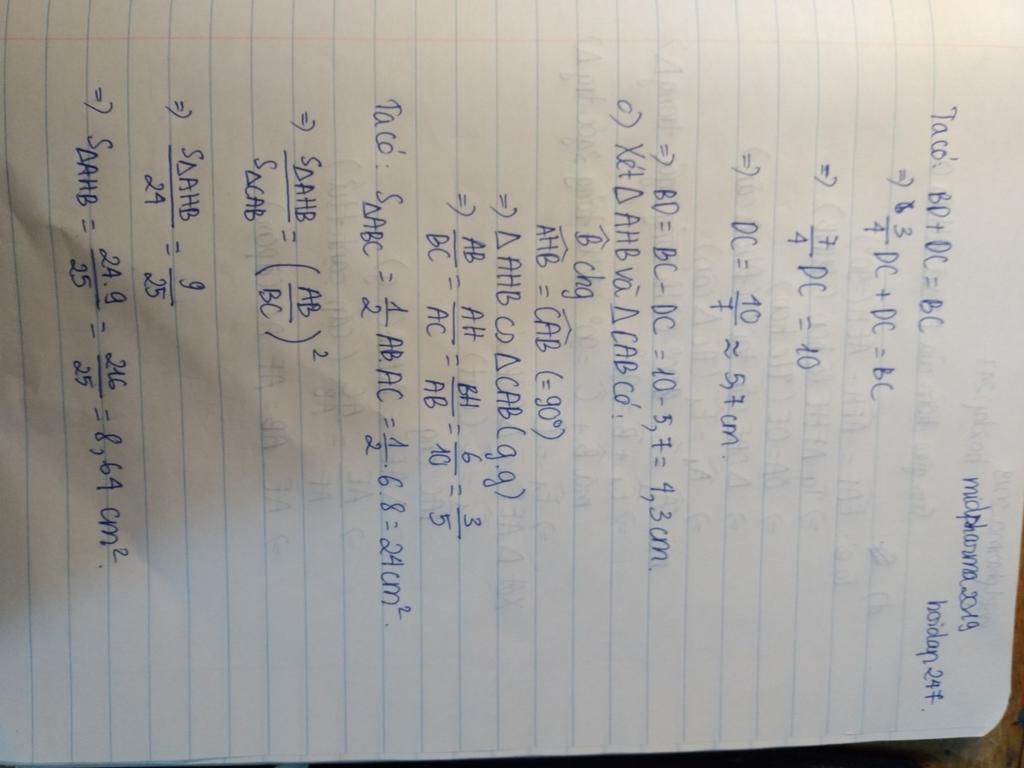 midpharma2019 hoidap247.
Ta có: BD + DC = BC
=> 3/4 DC + DC = BC
=> 7/4 DC = 10
=> DC = 10/7 ≈ 5,7 cm.
=> BD = BC - DC = 10 - 5,7 = 4,3 cm.
c) Xét Δ AHB và Δ CAB có:
B̂ chg
AHB̂ = CAB̂ (= 90°)
=> Δ AHB ∽ Δ CAB (g.g)
=> AB/BC = AH/AC = BH/AB = 6/10 = 3/5
Ta có: SΔABC = 1/2 AB.AC = 1/2 . 6.8 = 24 cm².
=> SΔAHB/SΔCAB = (AB/BC)²
=> SΔAHB/24 = 9/25
=> SΔAHB = 24.9/25 = 216/25 = 8,64 cm².